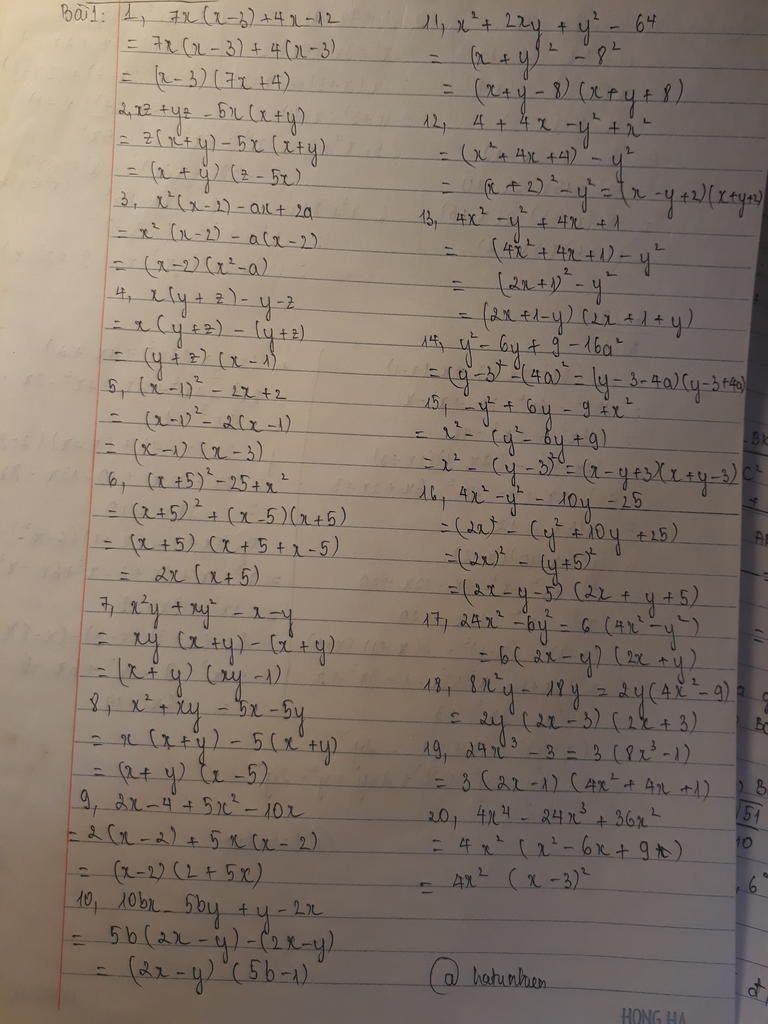 Bài 1: 1, 7x(x-3)+4x-12
= 7x(x-3)+4(x-3)
= (x-3)(7x+4)
2, xz+yz-5x(x+y)
= z(x+y)-5x(x+y)
= (x+y)(z-5x)
3, x²(x-2)-ax+2a
= x²(x-2)-a(x-2)
= (x-2)(x²-a)
4, x(y+z)-y-z
= x(y+z)-(y+z)
= (y+z)(x-1)
5, (x-1)²-2x+2
= (x-1)²-2(x-1)
= (x-1)(x-3)
6, (x+5)²-25+x²
= (x+5)²+(x-5)(x+5)
= (x+5)(x+5+x-5)
= 2x(x+5)
7, x²y+xy²-x-y
= xy(x+y)-(x+y)
= (x+y)(xy-1)
8, x²+xy-5x-5y
= x(x+y)-5(x+y)
= (x+y)(x-5)
9, 2x-4+5x²-10x
= 2(x-2)+5x(x-2)
= (x-2)(2+5x)
10, 10bx-5by+y-2x
= 5b(2x-y)-(2x-y)
= (2x-y)(5b-1)
11, x²+2xy+y²-64
= (x+y)²-8²
= (x+y-8)(x+y+8)
12, 4+4x-y²+x²
= (x²+4x+4)-y²
= (x+2)²-y²=(x-y+2)(x+y+2)
13, 4x²-y²+4x+1
= (4x²+4x+1)-y²
= (2x+1)²-y²
= (2x+1-y)(2x+1+y)
14, y²-6y+9-16a²
= (y-3)²-(4a)²=(y-3-4a)(y-3+4a)
15, -y²+6y-9+x²
= x²-(y²-6y+9)
= x²-(y-3)²=(x-y+3)(x+y-3)
16, 4x²-y²-10y-25
= (2x)²-(y²+10y+25)
= (2x)²-(y+5)²
= (2x-y-5)(2x+y+5)
17, 24x²-6y²=6(4x²-y²)
= 6(2x-y)(2x+y)
18, 8x²y-18y=2y(4x²-9)
= 2y(2x-3)(2x+3)
19, 24x³-3=3(8x³-1)
= 3(2x-1)(4x²+4x+1)
20, 4x⁴-24x³+36x²
= 4x²(x²-6x+9)
= 4x²(x-3)²
HONG HA